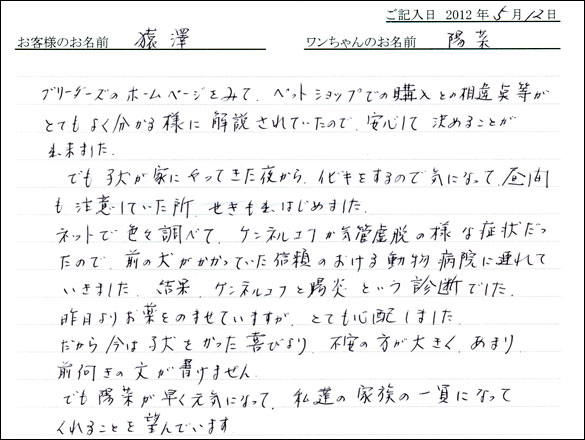 ご記入日 2012年5月12日
お客様のお名前 猿澤 ワンちゃんのお名前 陽菜
ブリーダーズのホームページをみて、ペットショップでの購入との相違点等が
とてもよく分かる様に解説されていたので、安心して決めることが
出来ました。
でも子犬が家にやってきた夜から、イビキをするので気になって、昼間
も注意していた所、せきも出はじめました。
ネットで色々調べて、ケンネルコフか気管虚脱の様な症状だっ
たので、前の犬がかかっていた信頼のおける動物病院に連れて
いきました。結果、ケンネルコフと腸炎という診断でした。
昨日よりお薬をのませていますが、とても心配しました。
だから今は子犬をかった喜びより、不安の方が大きく、あまり
前向きの文が書けません。
でも陽菜が早く元気になって、私達の家族の一員になって
くれることを望んでいます。